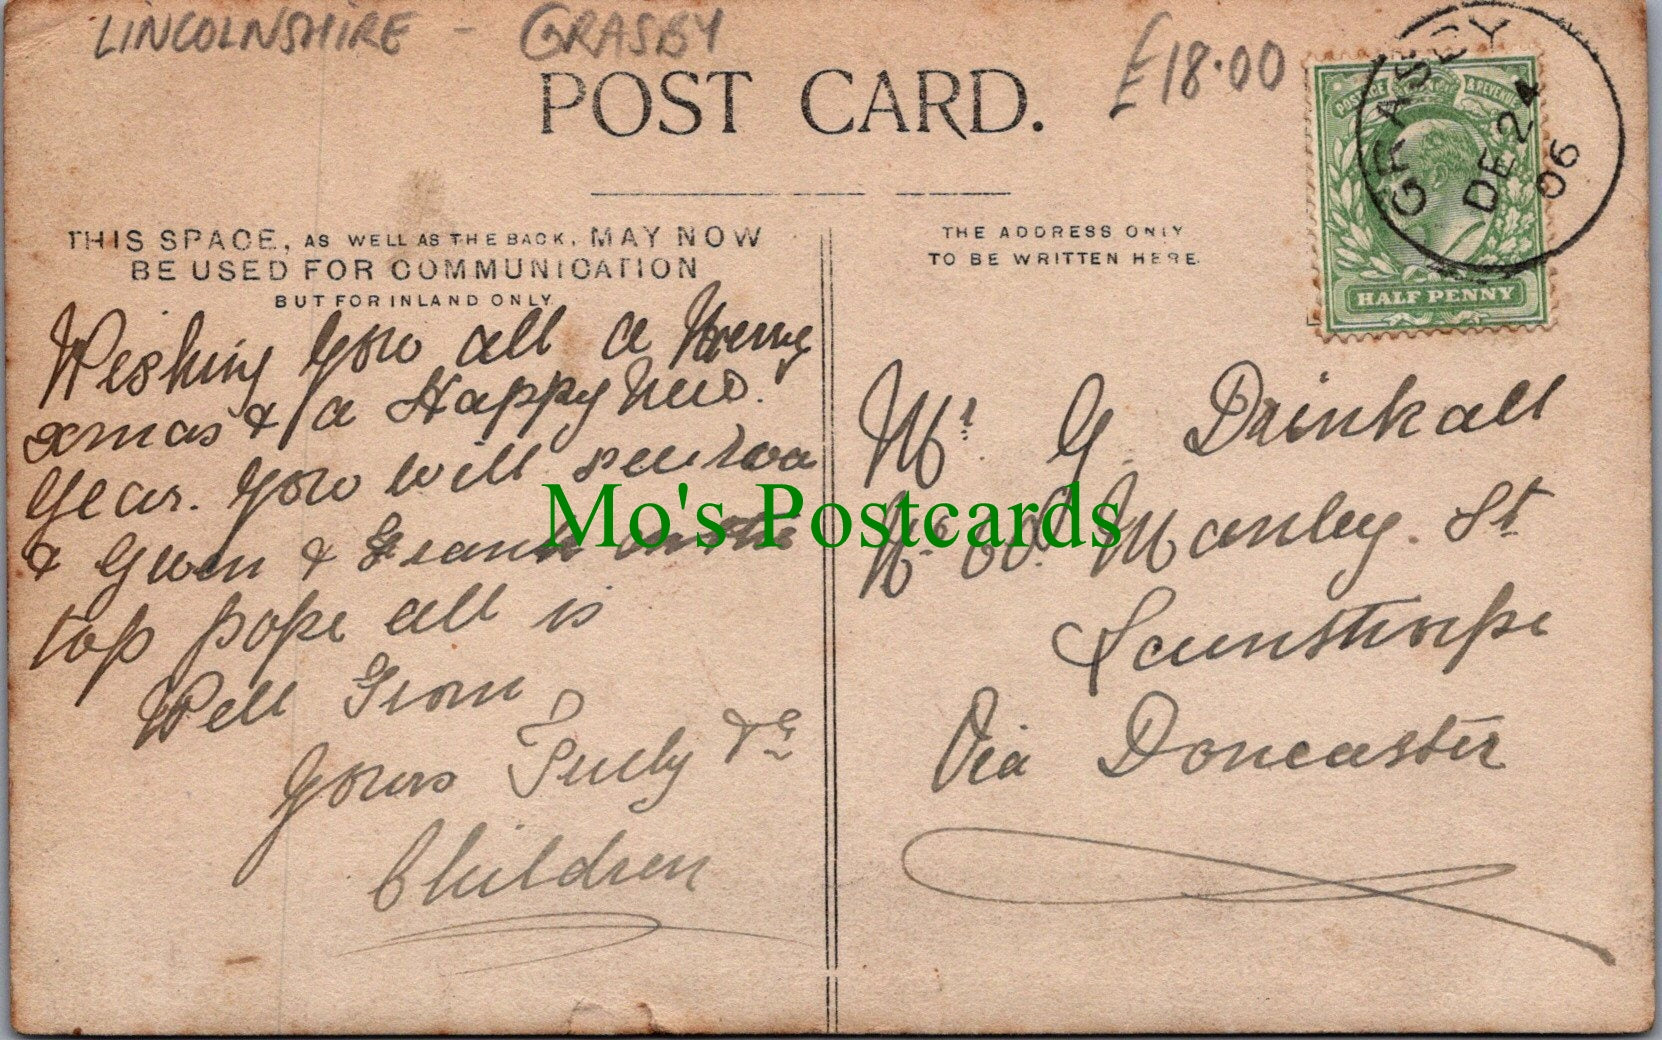 LINCOLNSHIRE - GRASBY
£18.00
POST CARD.
POSTAGE & REVENUE
HALF PENNY
GRASBY
DE 24
06
THIS SPACE, AS WELL AS THE BACK, MAY NOW
BE USED FOR COMMUNICATION
BUT FOR INLAND ONLY.
Wishing you all a Merry
xmas & a Happy New.
Year. you will see
& Gwen & Frank
top hope all is
Well From
yours Truly & G
Children
THE ADDRESS ONLY
TO BE WRITTEN HERE.
Mr. G. Drinkall
No. 60. Manley. St
Scunsthorpe
Via Doncaster
Mo's Postcards